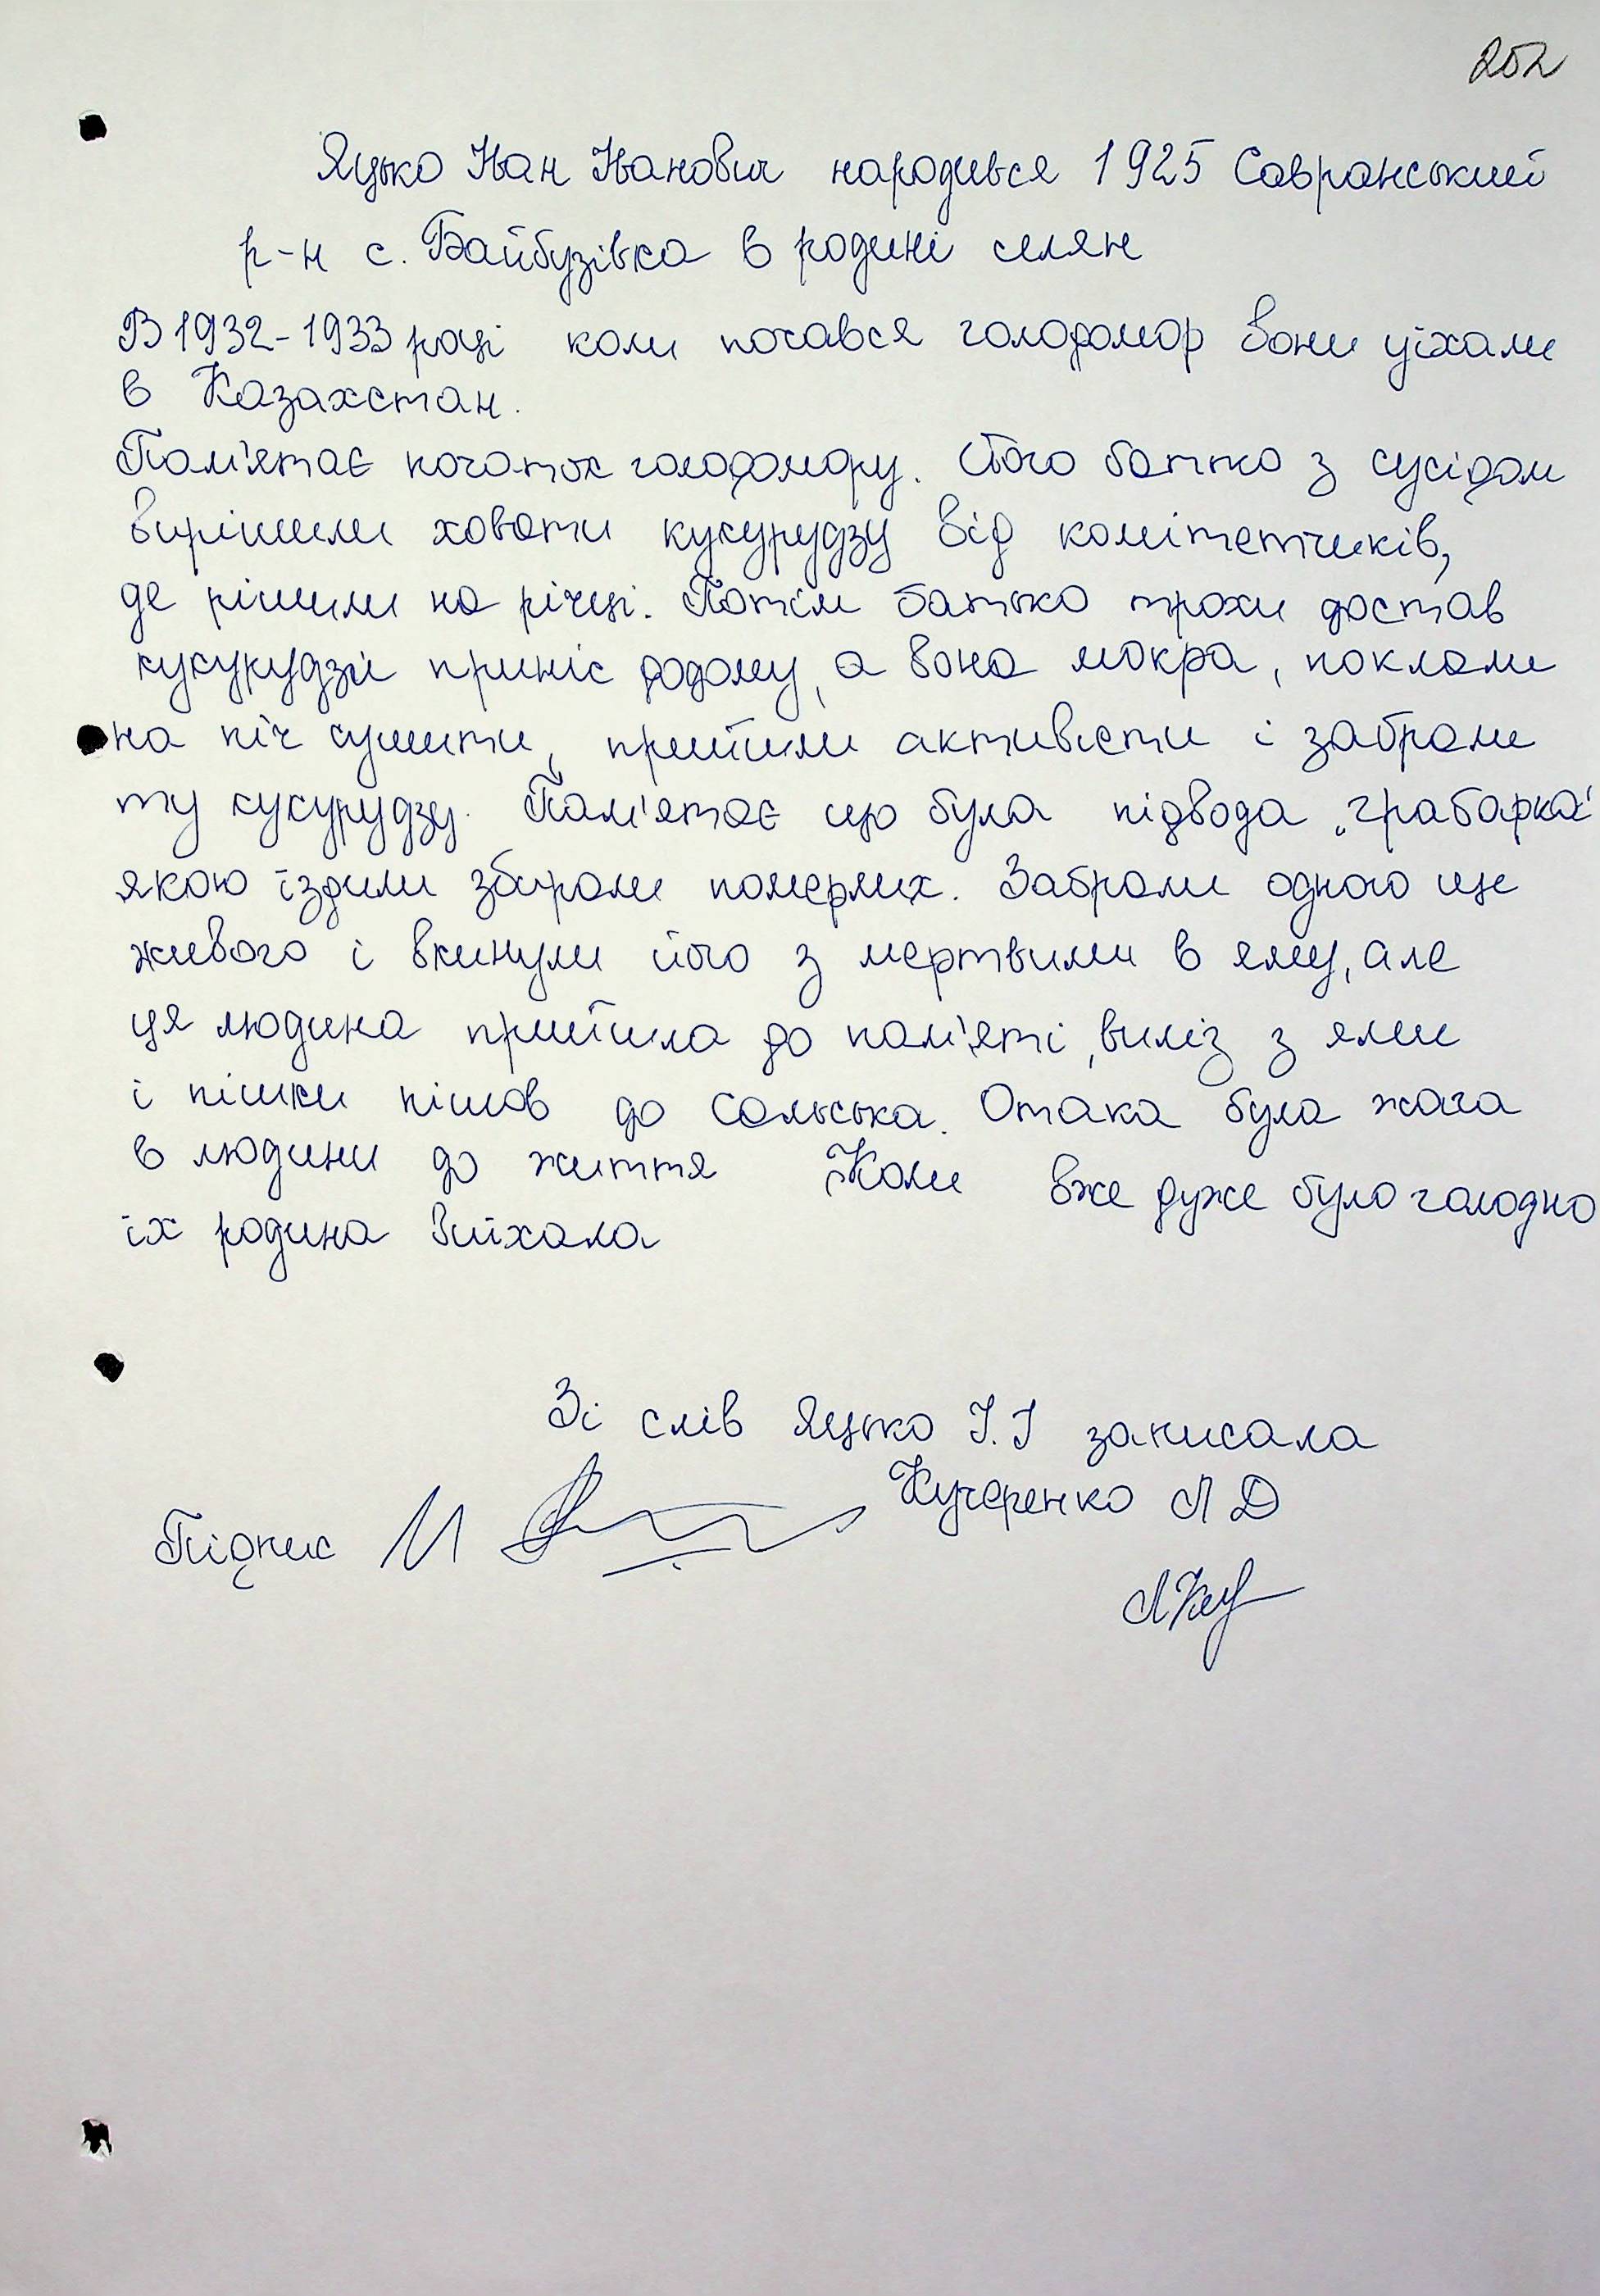 252
Яцько Іван Іванович народився 1925 Савранський
р-н с. Байбузівка в родині селян
В 1932-1933 році коли почався голодомор вони уїхали
в Казахстан.
Пам'ятає початок голодомору. Його батько з сусідом
вирішили ховати кукурудзу від комітетчиків,
де рішили на річці. Потім батько трохи достав
кукурудзи приніс додому, а вона мокра, поклали
на піч сушити, прийшли активісти і забрали
ту кукурудзу. Пам'ятає що була підвода "грабарка"
якою їздили збирали померлих. Забрали одного ще
живого і вкинули його з мертвими в яму, але
ця людина прийшла до пам'яті, виліз з ями
і пішки пішов до Сальська. Отака була жага
в людини до життя Коли вже дуже було голодно
їх родина виїхала
Зі слів Яцько І.І записала
Кучеренко Л Д
Підпис